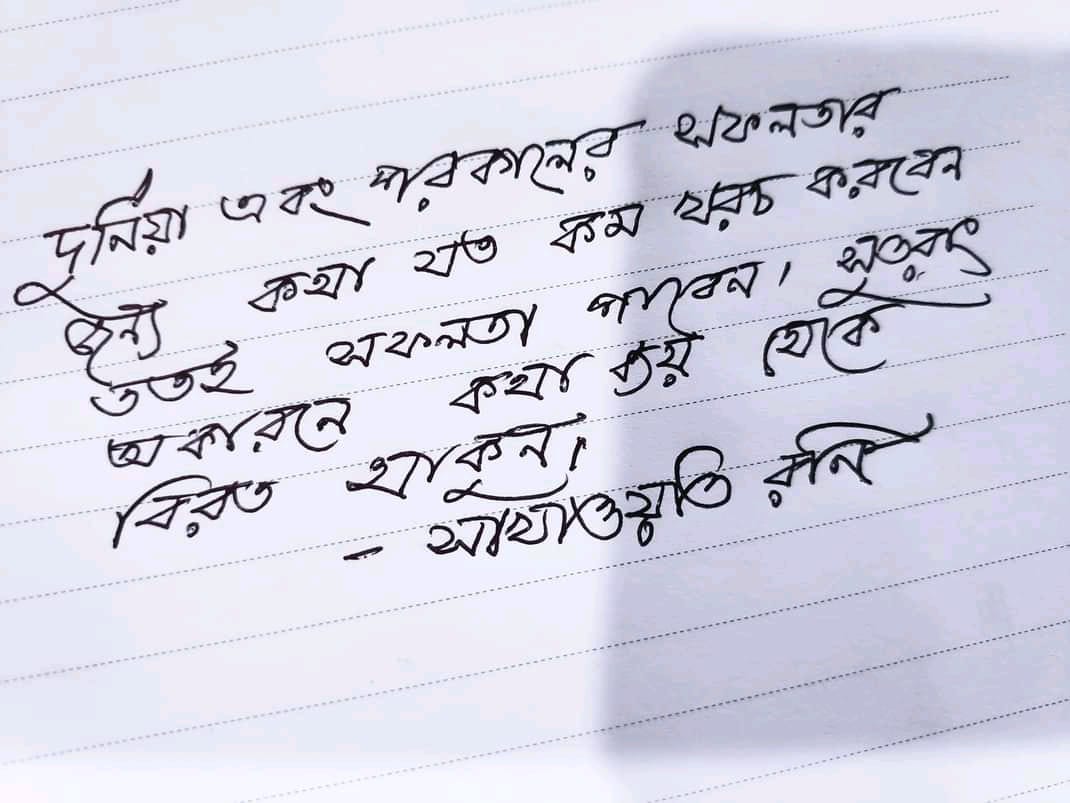 দুনিয়া এবং পরকালের সফলতার
জন্য কথা যত কম খরচ করবেন
ততই সফলতা পাবেন। সুতরাং
অকারনে কথা ব্যয় থেকে
বিরত থাকুন।
- সাখাওয়াত রনি